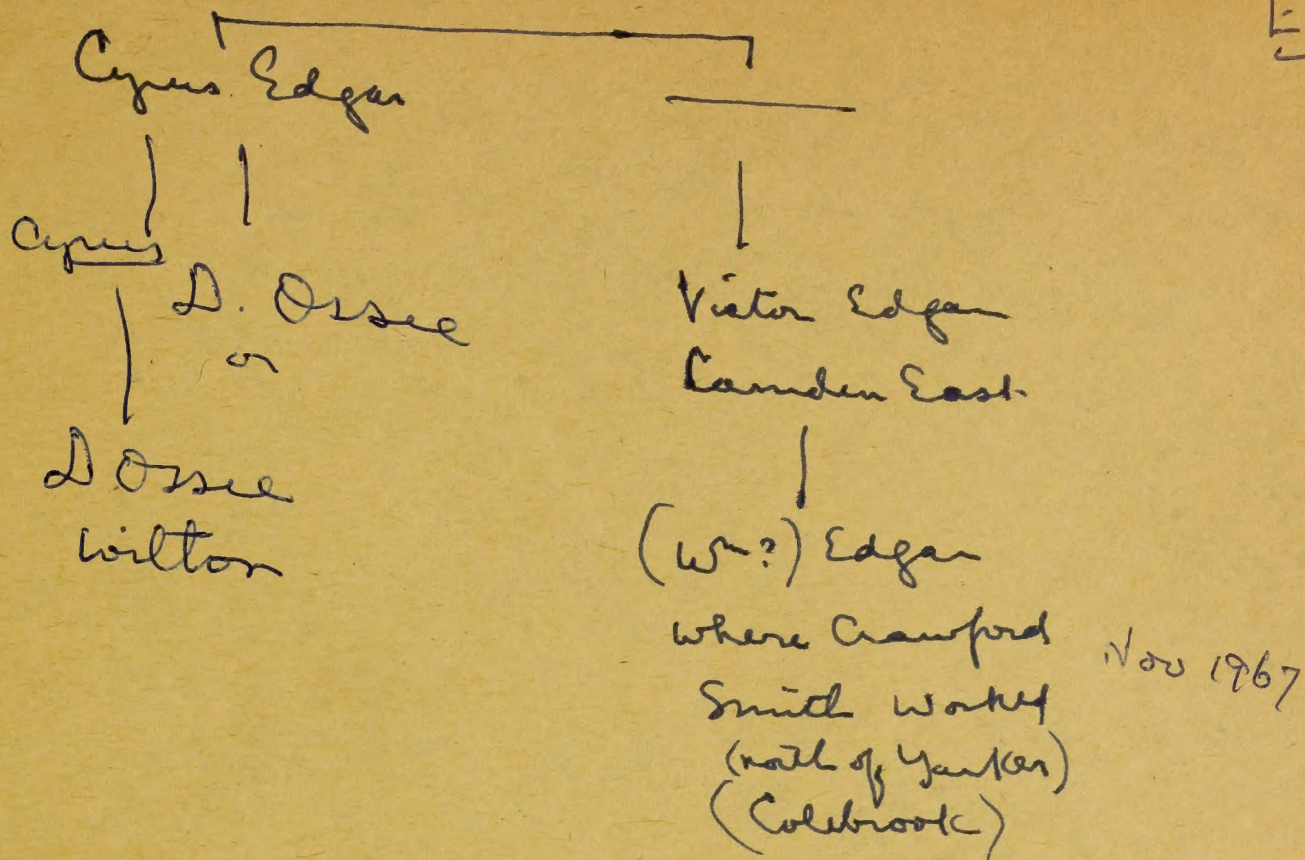 Cyrus Edgar
Cyrus
D. Ossee
or
D Ossee
Wilton
Victor Edgar
Camden East
(Wm?) Edgar
where Crawford
Smith worked
(north of Yarker)
(Colebrook)
Nov 1967